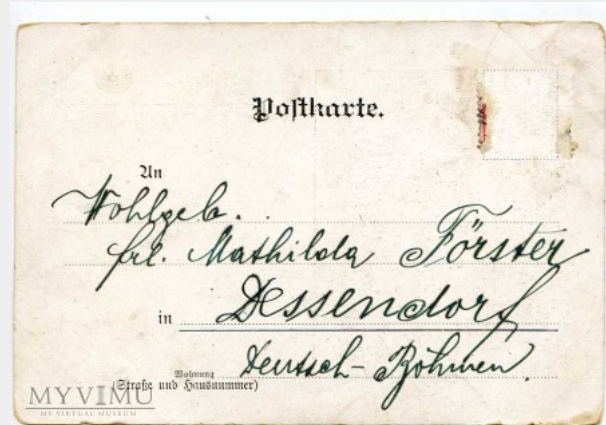 Postkarte.
An
Wohlgeb.
frl. Mathilda Förster
in Dessendorf
Deutsch-Böhmen.
Wohnung
(Straße und Hausnummer)
MYVIMU
MY VIRTUAL MUSEUM